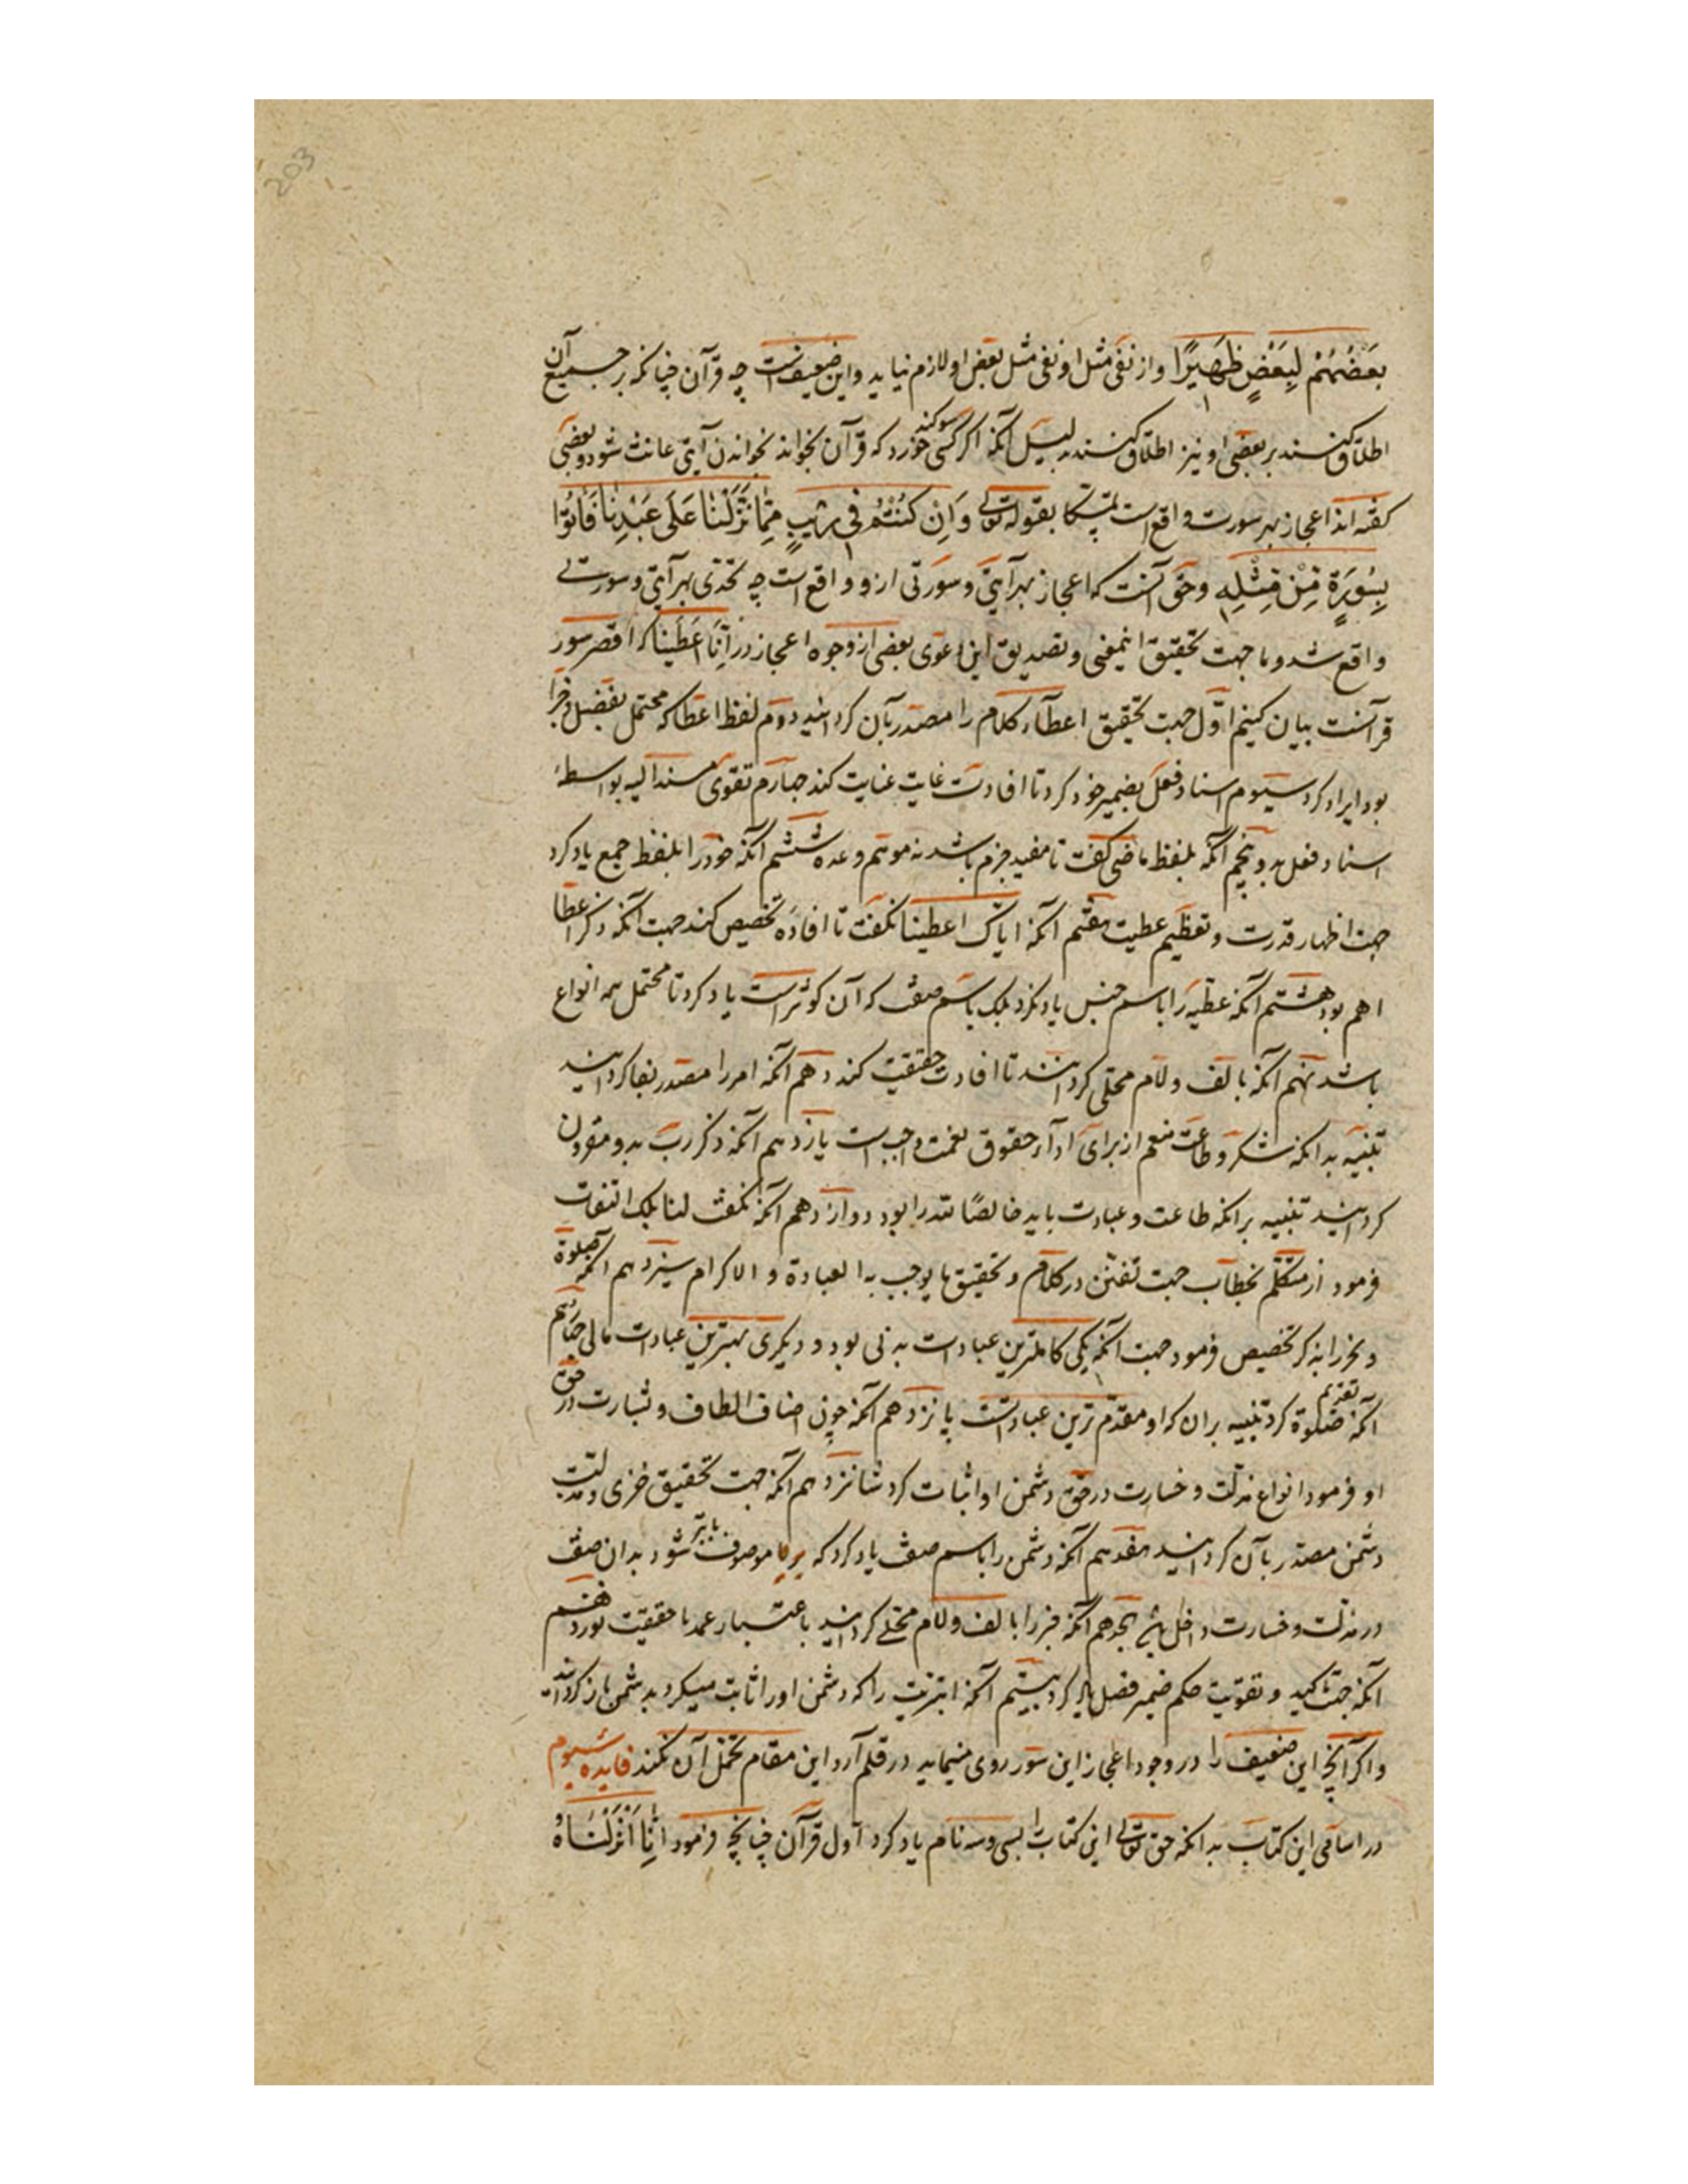 203
بَعْضُهُمْ لِبَعْضٍ ظَهِيرًا و از نفی مثل او نفی مثل بعض او لازم نیاید و این ضعیفست چه قرآن چنانکه بر جمیع آن
اطلاق کنند بر بعضی او نیز اطلاق کنند بدلیل آنکه اگر کسی سوکند خورد که قرآن نخواند بخواندن آیتی حانث شود و بعضی
کفته اند اعجاز بهر سورت واقع است تمسکا بقوله تعالی وَاِنْ كُنْتُمْ فِی رَیْبٍ مِمّا نَزَّلْنَا عَلَی عَبْدِنَا فَأْتُوا
بِسُورَةٍ مِنْ مِثْلِهِ و حق آنست که اعجاز بهر آیتی و سورتی ازو واقع است چه تحدی بهر آیتی و سورتی
واقع شد و ما جهت تحقیق اینمعنی و تصدیق این دعوی بعضی از وجوه اعجاز در اِنّا اَعْطَیْنَا که اقصر سور
قرآنست بیان کنیم اوّل جهت تحقیق اعطآء کلام را مصدر بآن کردانید دوم لفظ اعطا که محتمل تفضل و جزا
بود ایراد کرد سیوم اسناد فعل بضمیر خود کرد تا افادت غایت عنایت کند چهارم تقوی مسند الیه بواسطهٔ
اسناد فعل بدو پنجم آنکه بلفظ ماضی کفت تا مفید جزم باشد نه موهم وعده ششم آنکه خود را بلفظ جمع یاد کرد
جهت اظهار قدرت و تعظیم عطیت هفتم آنکه ایاک اعطینا نکفت تا افادهٔ تخصیص کند جهت آنکه ذکر اعطا
اهم بود هشتم آنکه عطیه را باسم جنس یاد نکرد بلک باسم صفت که آن کوثر است یاد کرد تا محتمل همه انواع
باشد نهم آنکه بالف و لام محلی کردانند تا افادت حقیقت کند دهم آنکه امر را مصدر بفا کردانید
تنبیه بدانکه شکر و طاعت منعم از برای ادآء حقوق نعمت واجب است یازدهم آنکه ذکر رب بدو مقرون
کردانید تنبیه برانکه طاعت و عبادت باید خالصًا لله را بود دوازدهم آنکه نکفت لنا بلک التفات
فرمود از متکلم بخطاب جهت تفنن در کلام و تحقیق ما یوجب به العبادة و الاکرام سیزدهم آنکه صلوة
و نحر را بذکر تخصیص فرمود جهت آنکه یکی کاملترین عبادات بدنی بود و دیکری بهترین عبادات مالی چهاردهم
آنکه تقدیم صلوة کرد تنبیه بران که او مقدم ترین عباداتست پانزدهم آنکه چون اصناف الطاف و بشارت در حق
او فرمود انواع مذلت و خسارت در حق دشمن او اثبات کرد شانزدهم آنکه جهت تحقیق خزی و مذلت
دشمن مصدر بآن کردانید هفدهم آنکه دشمن را باسم صفت یاد کرد که موصوف شود بدان صفت
در مذلت و خسارت داخل باشد هجدهم آنکه خبر را بالف و لام محلی کردانید باعتبار عهد یا حقیقت نوزدهم
آنکه جهت تاکید و تقویت حکم ضمیر فصل یاد کرد بیستم آنکه ابتریت را که دشمن او را ثابت میکرد بدشمن باز کردانید
و اکر آنچه این ضعیف را در وجود اعجاز این سور روی مینماید در قلم آرد این مقام تحمل آن نکند فایده سیوم
در اسامی این کتاب بدانکه حق تعالی این کتاب را بسی و سه نام یاد کرد اول قرآن چنانچه فرمود اِنَّا اَنْزَلْنَاهُ